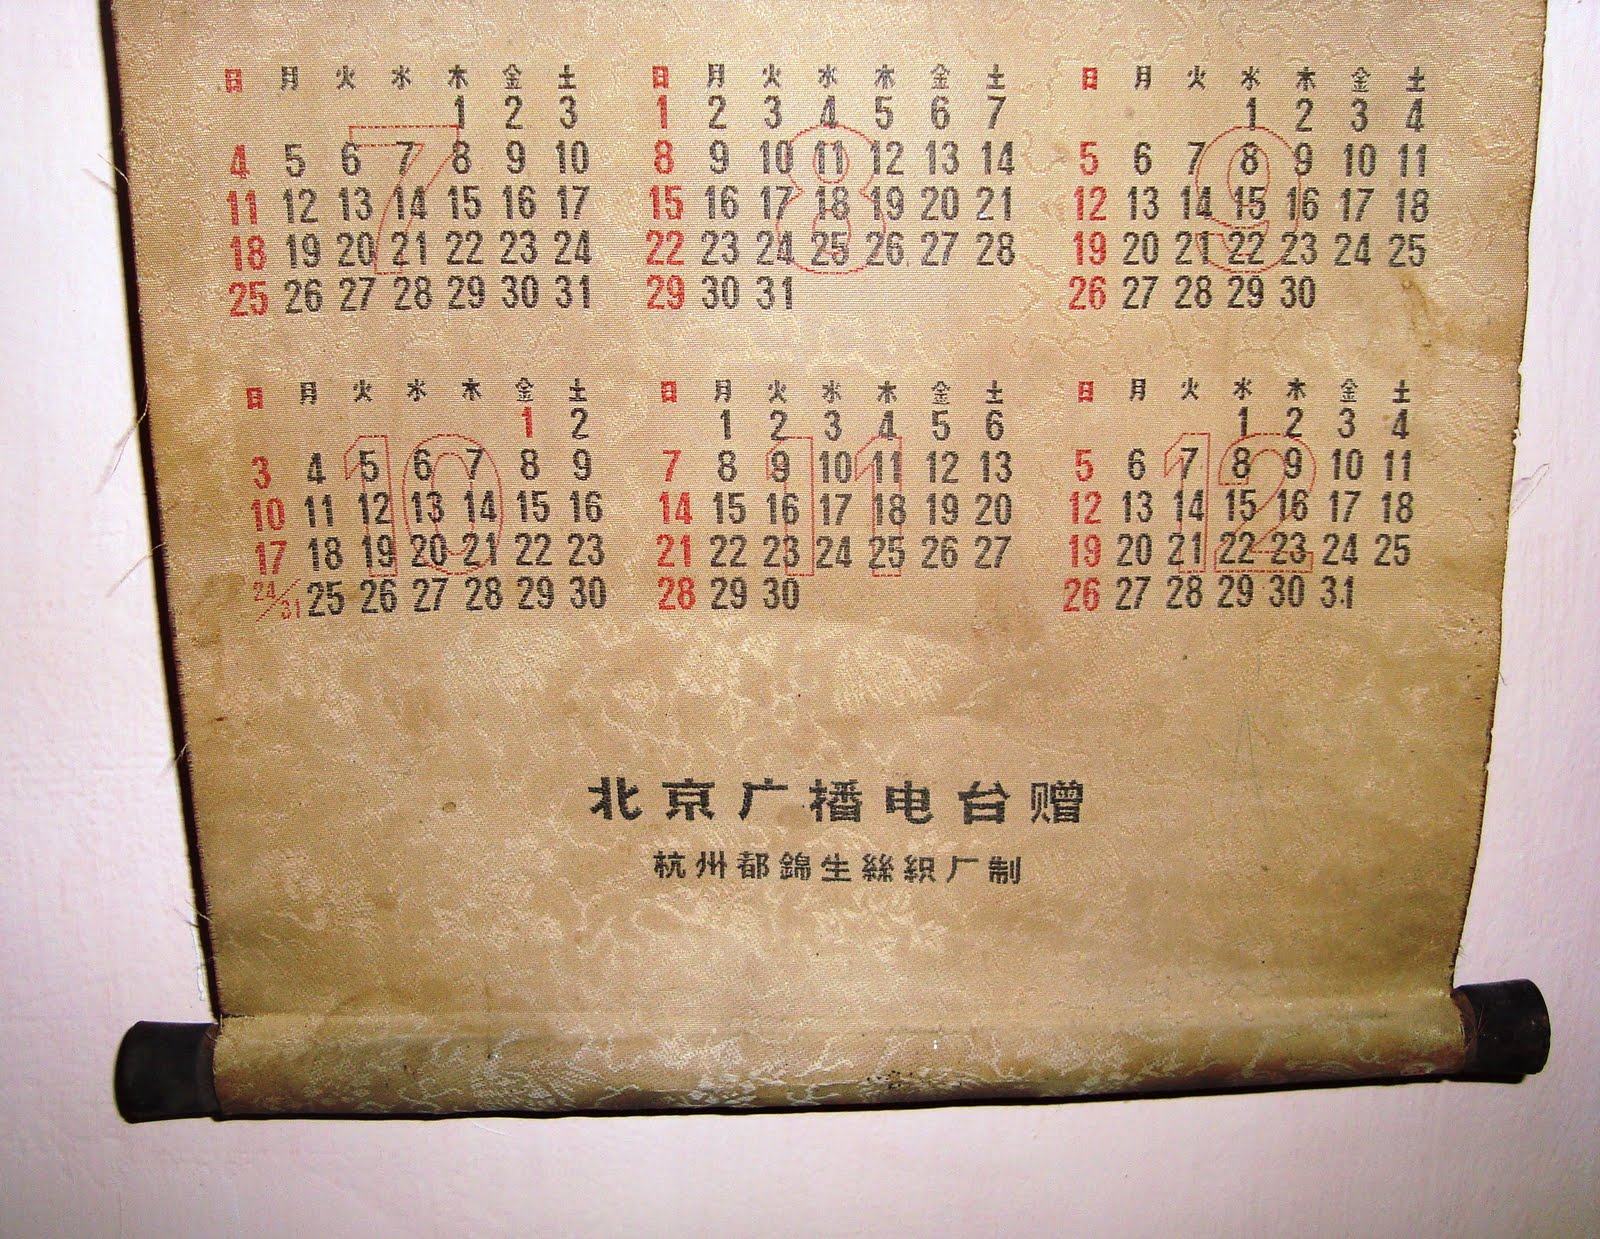 日 月 火 水 木 金 土 日 月 火 水 木 金 土 日 月 火 水 木 金 土
1 2 3 1 2 3 4 5 6 7 1 2 3 4
4 5 6 7 8 9 10 8 9 10 11 12 13 14 5 6 7 8 9 10 11
11 12 13 14 15 16 17 15 16 17 18 19 20 21 12 13 14 15 16 17 18
18 19 20 21 22 23 24 22 23 24 25 26 27 28 19 20 21 22 23 24 25
25 26 27 28 29 30 31 29 30 31 26 27 28 29 30
7 8 9
日 月 火 水 木 金 土 日 月 火 水 木 金 土 日 月 火 水 木 金 土
1 2 1 2 3 4 5 6 1 2 3 4
3 4 5 6 7 8 9 7 8 9 10 11 12 13 5 6 7 8 9 10 11
10 11 12 13 14 15 16 14 15 16 17 18 19 20 12 13 14 15 16 17 18
17 18 19 20 21 22 23 21 22 23 24 25 26 27 19 20 21 22 23 24 25
24/31 25 26 27 28 29 30 28 29 30 26 27 28 29 30 31
10 11 12
北京广播电台赠
杭州都錦生絲織厂制